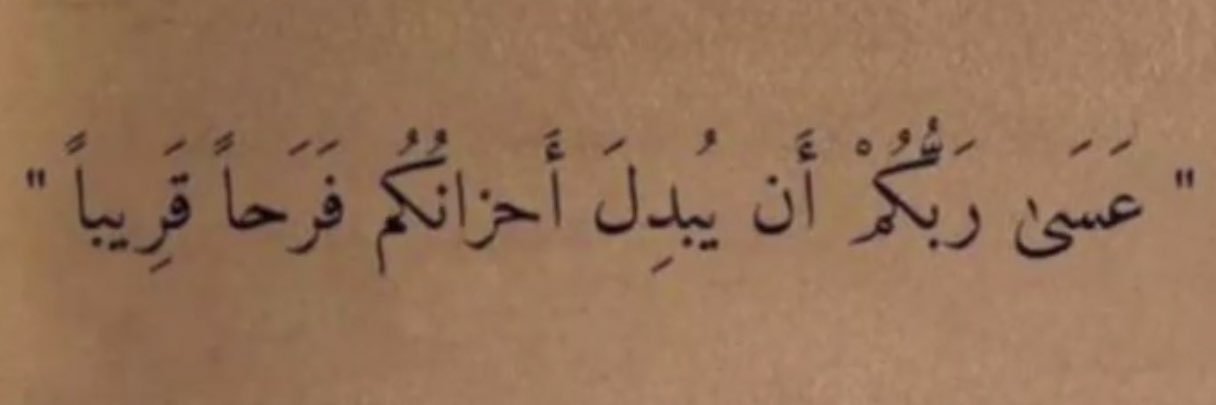 " عَسَىٰ رَبُّكُمْ أَن يُبدِلَ أَحزانُكُم فَرَحاً قَرِيباً "